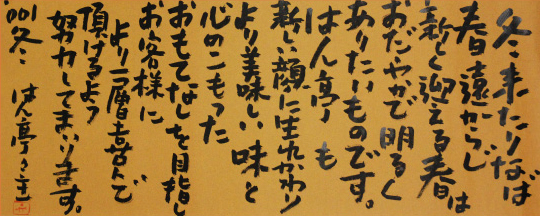 冬来たりなば
春遠からじ
新しく迎える春は
おだやかで明るく
ありたいものです。
はん亭も
新しい顔に生れかわり
より美味しい味と
心のこもった
おもてなしを目指し
お客様に
より一層喜んで
頂けるよう
努力してまいります。
'001冬 はん亭主